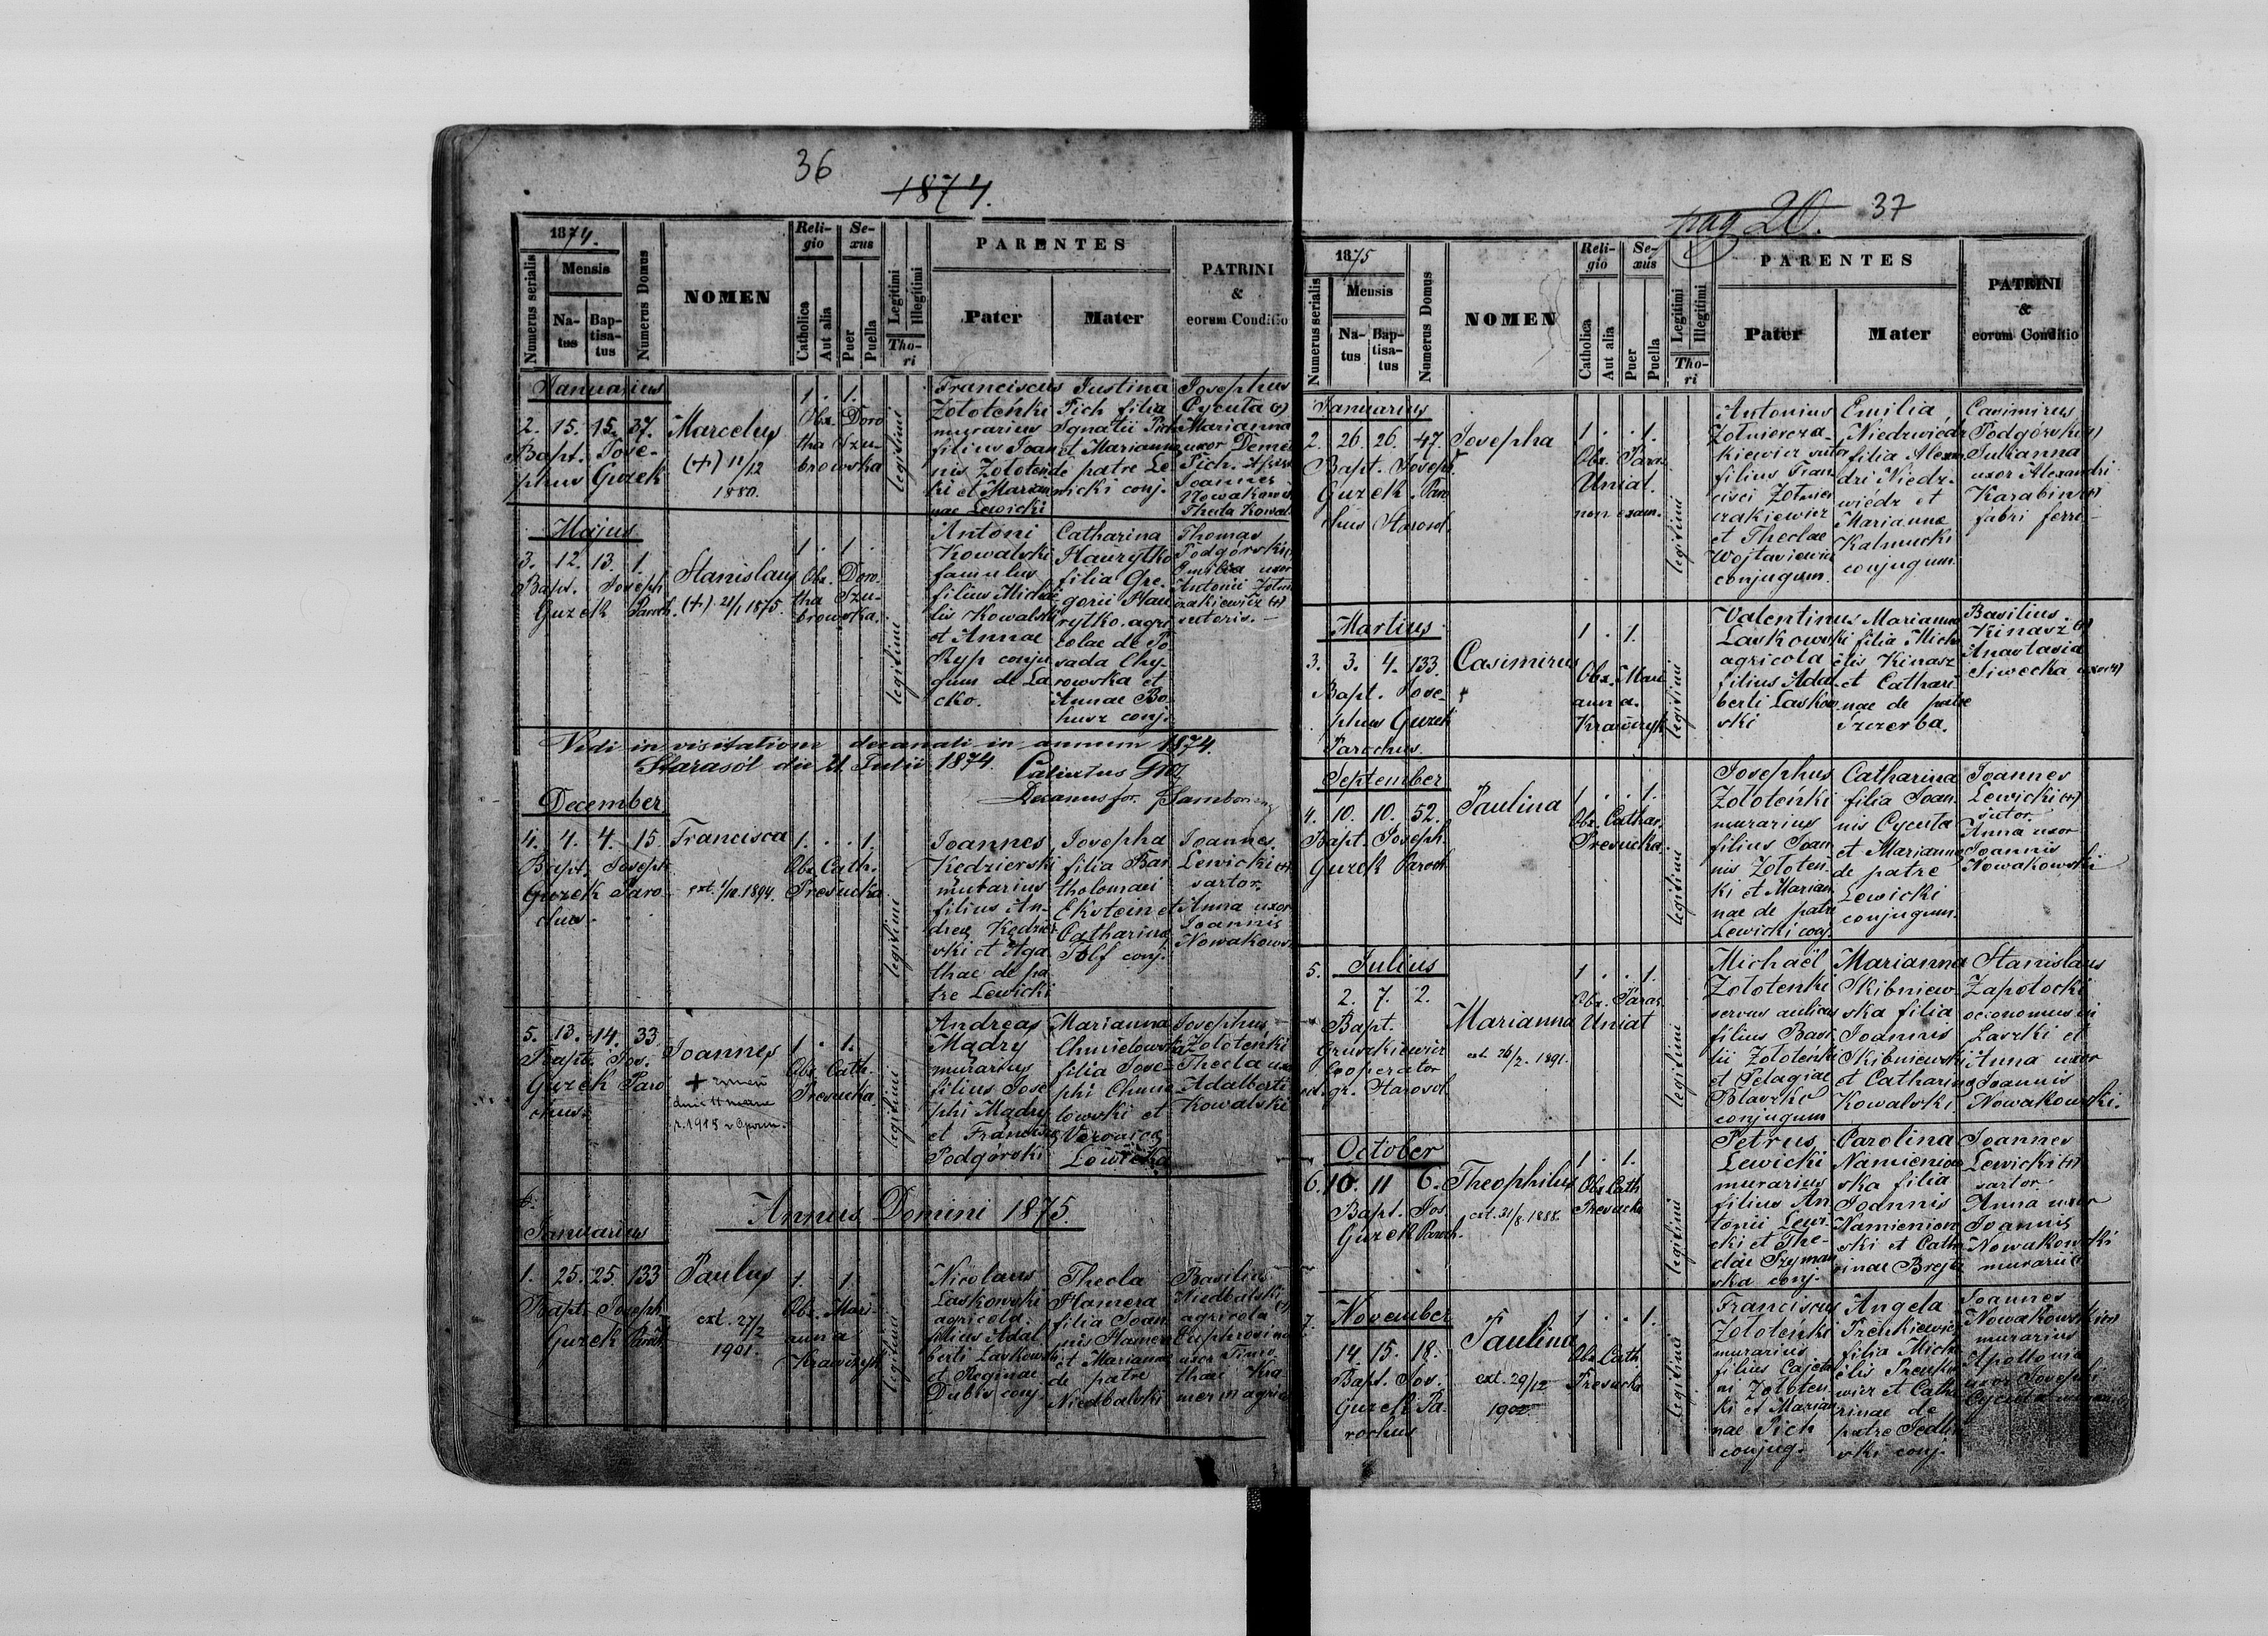 36
1874.
1874.
Numerus serialis
Mensis
Natus
Baptisatus
Numerus Domus
NOMEN
Religio
Catholica
Aut alia
Sexus
Puer
Puella
Legitimi
Illegitimi
Thori
PARENTES
Pater
Mater
PATRINI
&
eorum Conditio
Januarius
2. 15. 15. 37.
Bapt. Jose-
phus Guzek
Marcelus
(+) 11/12
1880.
1. 1.
Obx. Doro
tha Szu-
browska
legitimi
Franciscus
Zołoteńki
murarius
filius Joan
nis Zołoteń
ki et Marian
nae Lewicki
Justina
Pich filia
Ignatii Pich
et Marianna
de patre Le
wicki conj.
Josephus
Cycuta (+)
Marianna
uxor Deme
Pich.
Joannes
Nowakows
Thecla Kowal
Majus
3. 12. 13. 1.
Bapt. Joseph
Guzek Paroch.
Stanislaus
(+) 21/1 1875.
1. 1.
Obx. Doro.
tha Szu-
browska.
legitimi
Antoni
Kowalski
famulus
filius Micha
lis Kowalski
et Annae
Ryp conju
gum de La
cko.
Catharina
Hawrytko
filia Gre-
gorii Haw
rytko agri
colae de Po
sada Chy-
rowska et
Annae Bo
husz conj.
Thomas
Podgórski
Emilia uxor
Antonii Żołni
rzakiewicz (+)
sutoris.
Vidi in visitatione decanali in annum 1874.
Starasól die 21. Julii 1874.
Decanus for. Sambor
December
4. 4. 4. 15
Bapt. Joseph
Guzek Paro
chus.
Francisca
ext. 1/10. 1894.
1. . . 1.
Obx. Cath.
Presucka
legitimi
Joannes
Kędzierski
murarius
filius An-
dreae Kędzier
ski et Aga
thae de pa
tre Lewicki
Josepha
filia Bar
tholomaei
Ekstein et
Catharina
Tolf conj.
Joannes
Lewicki (+)
sartor.
Anna uxor
Joannis
Nowakows.
5. 13. 14. 33.
Bapt. Jos.
Guzek Paro
chus.
Joannes
1. . 1.
Obx. Cath.
Presucka.
legitimi
Andreas
Mądry
murarius
filius Jose
phi Mądry
et Francisca
Podgórski
Marianna
Chmielowska
filia Jose-
phi Chmie
lowski et
Lowicka
Josephus
Zołoteńki
Thecla uxor
Adalberti
Kowalski
Annus Domini 1875.
Januarius
1. 25. 25. 133
Bapt. Joseph
Guzek Paroch.
Paulus
ext. 27/2
1901.
1. 1.
Obx. Mari
anna
Krawczyk
legitimi
Nicolaus
Laskowski
agricola.
filius Adal
berti Laskowski
et Reginae
Dubis conj.
Thecla
Hamera
filia Joan
nis Hamera
et Marianna
de patre
Niedbalski
Basilius
Niedbalski (+)
agricola
Euphrosina
uxor Timo
thaei Kra
mer in agric
pag 20.
37
1875
Numerus serialis
Mensis
Natus
Baptisatus
Numerus Domus
NOMEN
Religio
Catholica
Aut alia
Sexus
Puer
Puella
Legitimi
Illegitimi
Thori
PARENTES
Pater
Mater
PATRINI
&
eorum Conditio
Januarius
2. 26. 26. 47.
Bapt. Joseph
Guzek. Paro
chus Starosol.
Josepha
1. . . 1.
Obx. Paras.
Uniat.
non exam.
legitimi
Antonius
Żołniercza-
kiewicz sutor
filius Fran
cisci Żołnier
czakiewicz
et Theclae
Wojtasiewicz
conjugum.
Emilia
Niedzwiedz
filia Alexan
dri Niedz-
wiedz et
Marianna
Kalmucki
conjugum.
Casimirus
Podgórski (+)
Julianna
uxor Alexandri
Karabin (+)
fabri ferra-
Martius
3. 3. 4. 133.
Bapt. Jose-
phus Guzek
Parochus.
Casimirus
1. . 1.
Obx. Mari
anna.
Krawczyk
legitimi
Valentinus
Laskowski
agricola
filius Adal-
berti Laskow
ski
Marianna
filia Micha
elis Kinasz
et Cathari
nae de patre
Szczerba.
Basilius
Kinasz (+)
Anastasia
Siwecka uxor (+)
September
4. 10. 10. 52.
Bapt. Joseph.
Guzek Paroch.
Paulina
1. . . 1.
Obx. Cathar.
Presucka.
legitimi
Josephus
Zołoteńki
murarius
filius Joan
nis Zołoteń-
ki et Marian
nae de patre
Lewicki conj.
Catharina
filia Joan-
nis Cycuta
et Marianna
de patre
Lewicki
conjugum.
Joannes
Lewicki (+)
sutor
Anna uxor
Joannis
Nowakowski
5. Julius
2. 7. 2.
Bapt.
Gruszkiewicz
Cooperator
rit. gr. Starosol.
Marianna
ext. 26/2. 1891.
1. . . 1.
Obx. Paras.
Uniat
legitimi
Michaël
Zołoteńki
servus aulicus
filius Basi
lii Zołoteńki
et Pelagiae
Błaszko
conjugum
Marianna
Skibniew-
ska filia
Joannis
Skibniewski
et Catharina
Kowalski.
Stanislaus
Zapotocki
oeconomus in
Laszki et
Anna uxor
Joannis
Nowakowski.
October
6. 10. 11 6.
Bapt. Jos.
Guzek Paroch.
Theophilus
ext. 31/8. 1888.
1. . 1.
Obx. Cath
Presucka
legitimi
Petrus
Lewicki
murarius
filius An
tonii Lewi-
cki et The-
clae Szyman
ska conj.
Carolina
Namienion
ska filia
Joannis
Namienion
ski et Catha
rinae Brejta
Joannes
Lewicki (+)
sartor.
Anna uxor
Joannis
Nowakowski
murarii.
7. November
14. 15. 18.
Bapt. Jos.
Guzek Pa-
rochus
Paulina
ext. 29/12
1902.
1. . . 1.
Obx. Cath.
Presucka
legitimi
Franciscus
Zołoteńki
murarius
filius Cajeta
ni Zołoten
ki et Marian
nae Pich
conjug.
Angela
Prenkiewicz
filia Micha
elis Prenkie
wicz et Catha
rinae de
patre Jedliń
ski conj.
Joannes
Nowakowski (+)
murarius
Apollonia
uxor Josephi
Cycuta murarii